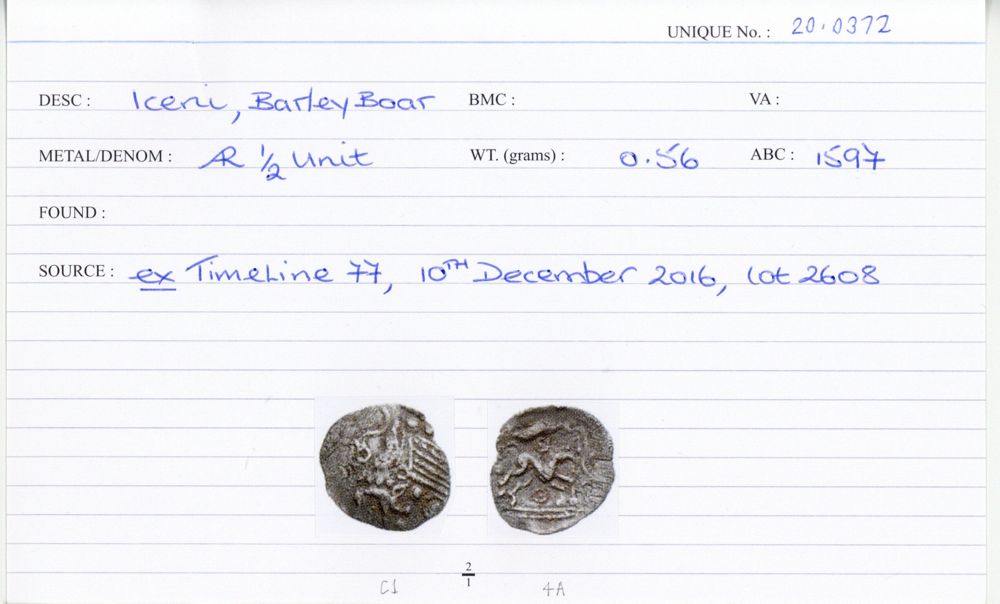 UNIQUE No. : 20.0372
DESC : Iceni, Barley Boar BMC : VA :
METAL/DENOM : AR ½ Unit WT. (grams) : 0.56 ABC : 1597
FOUND :
SOURCE : ex TimeLine 77, 10TH December 2016, lot 2608
2
C1 1 4A